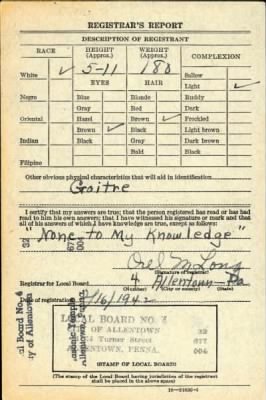 REGISTRAR'S REPORT
DESCRIPTION OF REGISTRANT
RACE HEIGHT (Approx.) WEIGHT (Approx.) COMPLEXION
White ✓ 5-11 180 Sallow
EYES HAIR Light ✓
Negro Blue Blonde Ruddy
Gray Red Dark
Oriental Hazel Brown ✓ Freckled
Brown ✓ Black Light brown
Indian Black Gray Dark brown
Bald Black
Filipino
Other obvious physical characteristics that will aid in identification
Goitre
I certify that my answers are true; that the person registered has read or has had
read to him his own answers; that I have witnessed his signature or mark and that
all of his answers of which I have knowledge are true, except as follows:
"None to My Knowledge"
Long
(Signature of registrar)
Registrar for Local Board 4 Allentown Pa
(Number) (City or county) (State)
Date of registration 2/16/1942
LOCAL BOARD NO. 4
OF ALLENTOWN 32
Turner Street 077
ALLENTOWN, PENNA. 004
(STAMP OF LOCAL BOARD)
(The stamp of the Local Board having jurisdiction of the registrant
shall be placed in the above space)